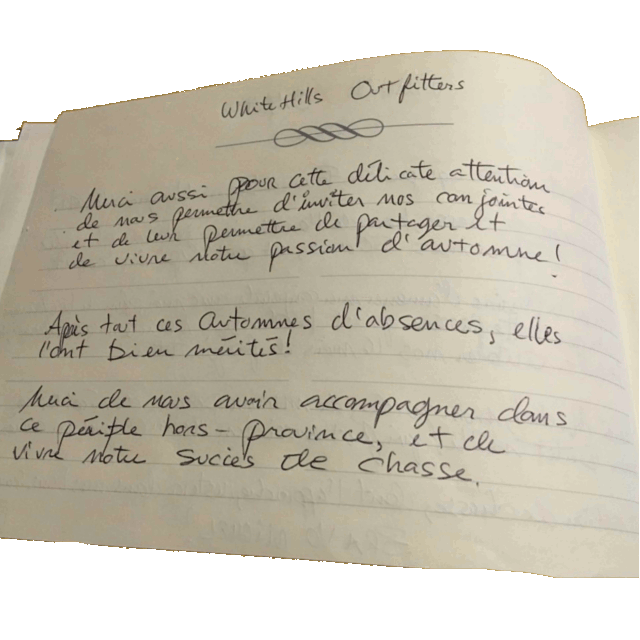 White Hills Outfitters
Merci aussi pour cette délicate attention
de nous permettre d'inviter nos conjointes
et de leur permettre de partager et
de vivre notre passion d'automne!
Après tout ces automnes d'absences, elles
l'ont bien mérités!
Merci de nous avoir accompagner dans
ce périple hors-province, et de
vivre notre succès de chasse.